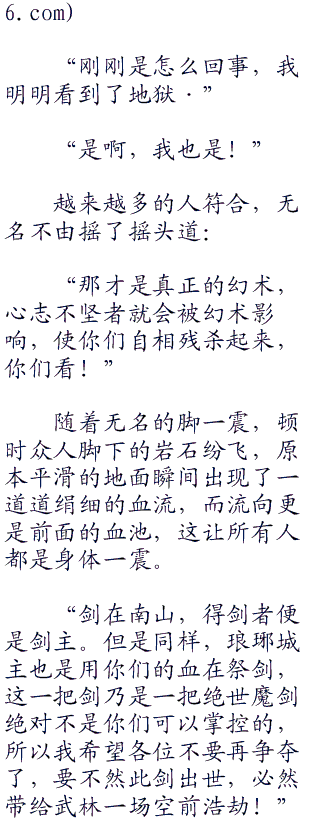 6.com)
“刚刚是怎么回事，我
明明看到了地狱·”
“是啊，我也是！”
越来越多的人符合，无
名不由摇了摇头道：
“那才是真正的幻术，
心志不坚者就会被幻术影
响，使你们自相残杀起来，
你们看！”
随着无名的脚一震，顿
时众人脚下的岩石纷飞，原
本平滑的地面瞬间出现了一
道道绢细的血流，而流向更
是前面的血池，这让所有人
都是身体一震。
“剑在南山，得剑者便
是剑主。但是同样，琅琊城
主也是用你们的血在祭剑，
这一把剑乃是一把绝世魔剑
绝对不是你们可以掌控的，
所以我希望各位不要再争夺
了，要不然此剑出世，必然
带给武林一场空前浩劫！”